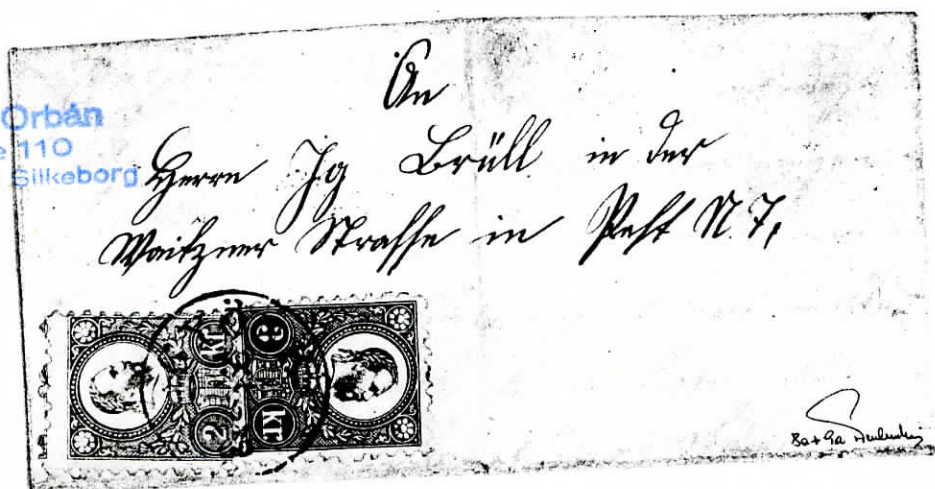 An
Orbán
110
Silkeborg
Herrn Ig Brüll in der
Waitzner Strasse in Pest N. 7,
2 kr
3 kr
8a + 9a